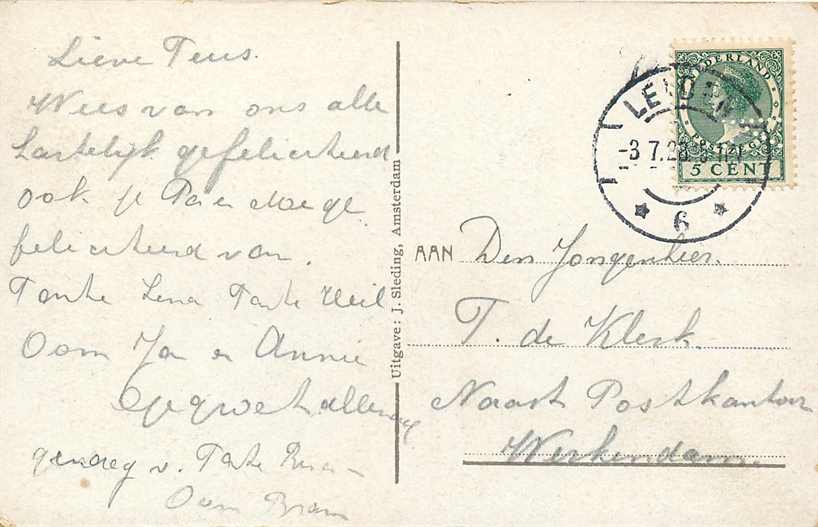 Lieve Teus.
Wees van ons alle
hartelijk gefeliciteerd
ook je Pa en
feliciteerd van.
Tante Lena Tante
Oom Jan en Annie
v. Tante
Oom Bram
Uitgave: J. Sleding, Amsterdam
NEDERLAND
5 CENT
LEIDEN
-3 7.28.
6
AAN Den Jongenheer.
T. de Klerk.
Naast Postkantoor
Werkendam.